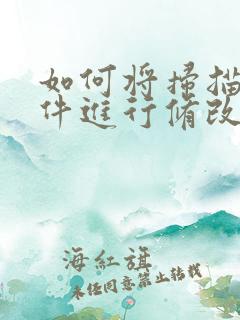 如何将掃描
件進行脩改
海紅旗
未经同意禁止转载